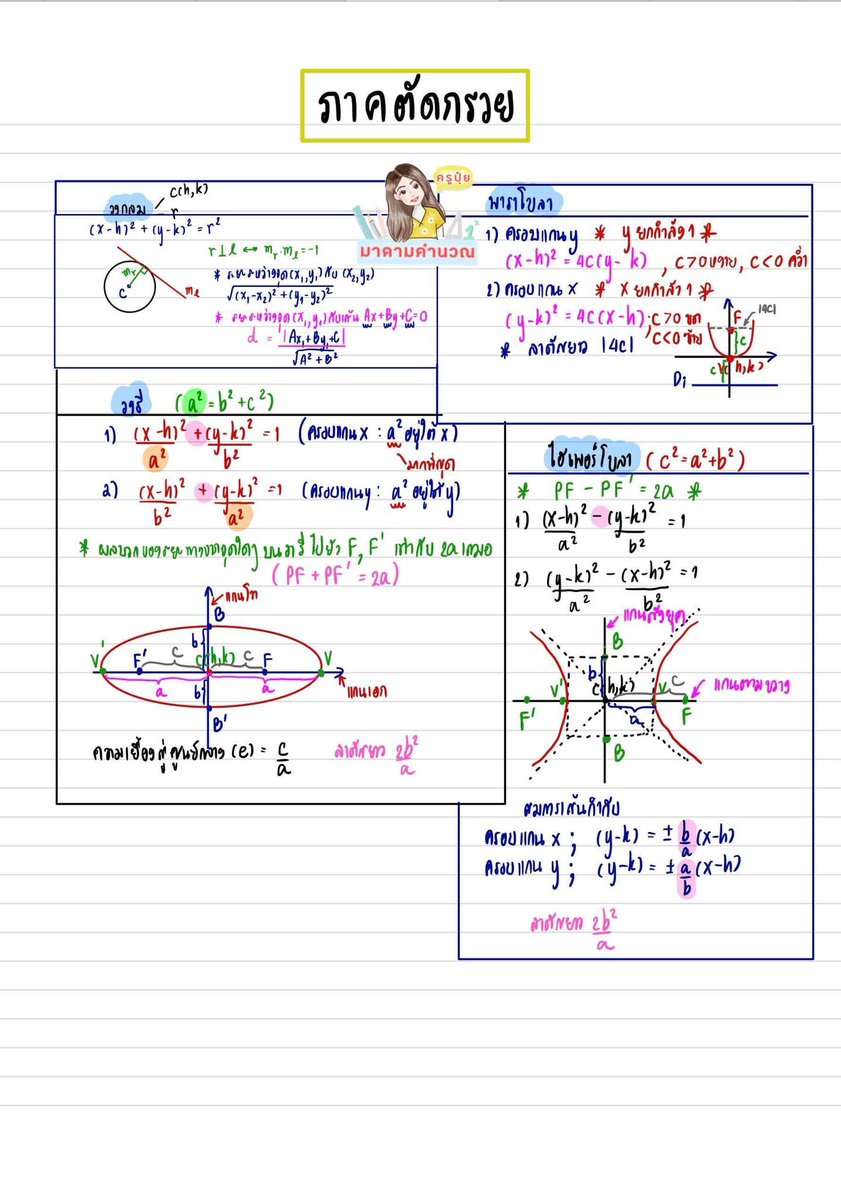 ภาคตัดกรวย
ครูปุ้ย
มาคามคำนวณ
วงกลม
C(h,k)
r
(x-h)² + (y-k)² = r²
r⊥l ↔ mᵣ·mₗ = -1
mᵣ
C
mₗ
* ระยะระหว่างจุด (x₁,y₁) กับ (x₂,y₂)
√((x₁-x₂)² + (y₁-y₂)²)
* ระยะระหว่าง (x₁,y₁) กับเส้น Ax+By+C=0
d = |Ax₁+By₁+C| / √(A²+B²)
พาราโบลา
1) ครอบแกน y * y ยกกำลัง 1 *
(x-h)² = 4c(y-k), c>0 หงาย, c<0 คว่ำ
2) ครอบแกน x * x ยกกำลัง 1 *
(y-k)² = 4c(x-h); c>0 ขวา
c<0 ซ้าย
* ลาตัสยาว |4c|
F
|4c|
c
V(h,k)
c
Di
วงรี (a² = b² + c²)
1) (x-h)²/a² + (y-k)²/b² = 1 (ครอบแกน x : a² อยู่ใต้ x)
มากที่สุด
2) (x-h)²/b² + (y-k)²/a² = 1 (ครอบแกน y : a² อยู่ใต้ y)
* ผลบวกของระยะทางจากจุดใดๆ บนวงรีไปยัง F, F' เท่ากับ 2a เสมอ
(PF + PF' = 2a)
แกนโท
B
b
V'
F'
c
C(h,k)
c
F
V
a
b
a
แกนเอก
B'
ความเยื้องศูนย์กลาง (e) = c/a
ลาตัสยาว 2b²/a
ไฮเพอร์โบลา (c² = a² + b²)
* PF - PF' = 2a *
1) (x-h)²/a² - (y-k)²/b² = 1
2) (y-k)²/a² - (x-h)²/b² = 1
แกนสังยุค
B
b
c
V'
C(h,k)
V
แกนตามขวาง
F'
a
F
B
สมการเส้นกำกับ
ครอบแกน x ; (y-k) = ± b/a (x-h)
ครอบแกน y ; (y-k) = ± a/b (x-h)
ลาตัสยาว 2b²/a